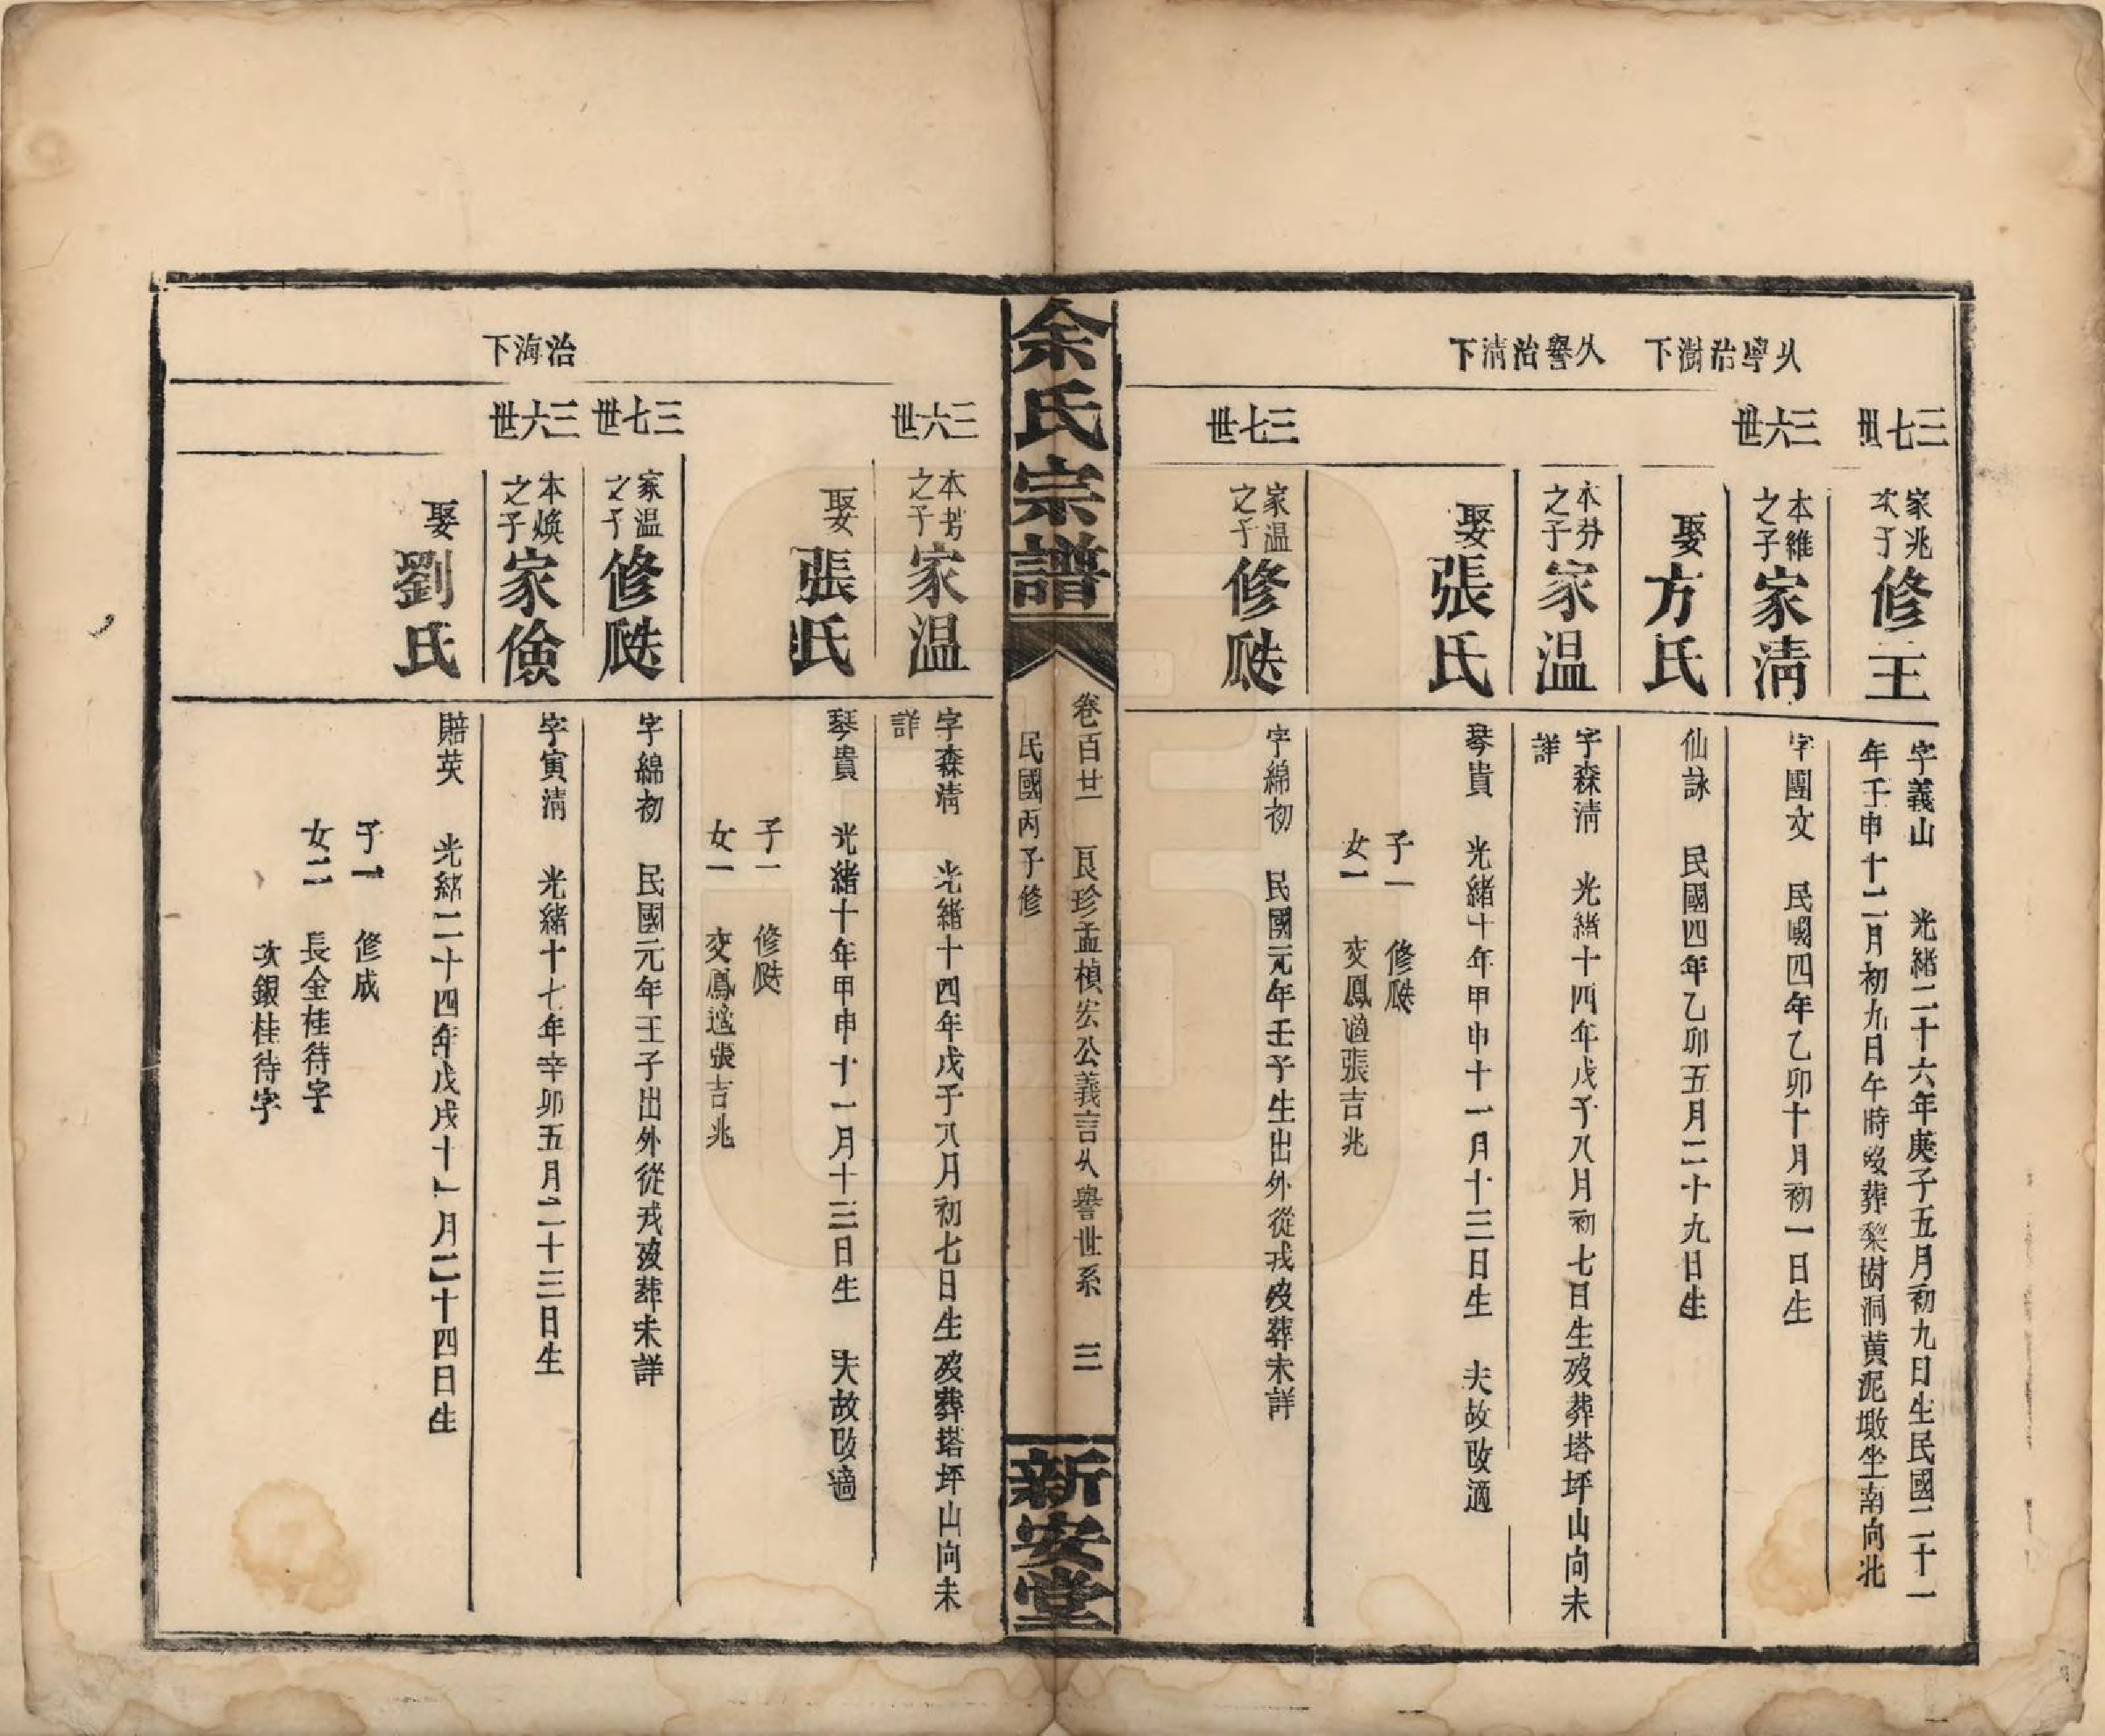 乆寧治澍下
乆譽治清下
三七世
家兆
次子
修王
字義山 光緒二十六年庚子五月初九日生民國二十一
年壬申十二月初九日午時歿葬棃樹洞黄泥墩坐南向北
三六世
本維
之子
家清
字團文 民國四年乙卯十月初一日生
娶方氏
仙詠 民國四年乙卯五月二十九日生
本芬
之子
家温
字森清 光緒十四年戊子八月初七日生歿葬塔坪山向未
詳
娶張氏
琴貴 光緒十年甲申十一月十三日生 夫故改適
子一 修瓞
女一 交鳳適張吉兆
三七世
家温
之子
修瓞
字綿初 民國元年壬子生出外從戎歿葬未詳
余氏宗譜
卷百廿一 良珍孟楨宏公義言乆譽世系 三
民國丙子修
新安堂
治海下
三六世
本芳
之子
家温
字森清 光緒十四年戊子八月初七日生歿葬塔坪山向未
詳
娶張氏
琴貴 光緒十年甲申十一月十三日生 夫故改適
子一 修瓞
女一 交鳳適張吉兆
三七世
家温
之子
修瓞
字綿初 民國元年壬子出外從戎歿葬未詳
三六世
本煥
之子
家儉
字寅清 光緒十七年辛卯五月二十三日生
娶劉氏
賠英 光緒二十四年戊戌十一月二十四日生
子一 修成
女二 長金桂待字
次銀桂待字